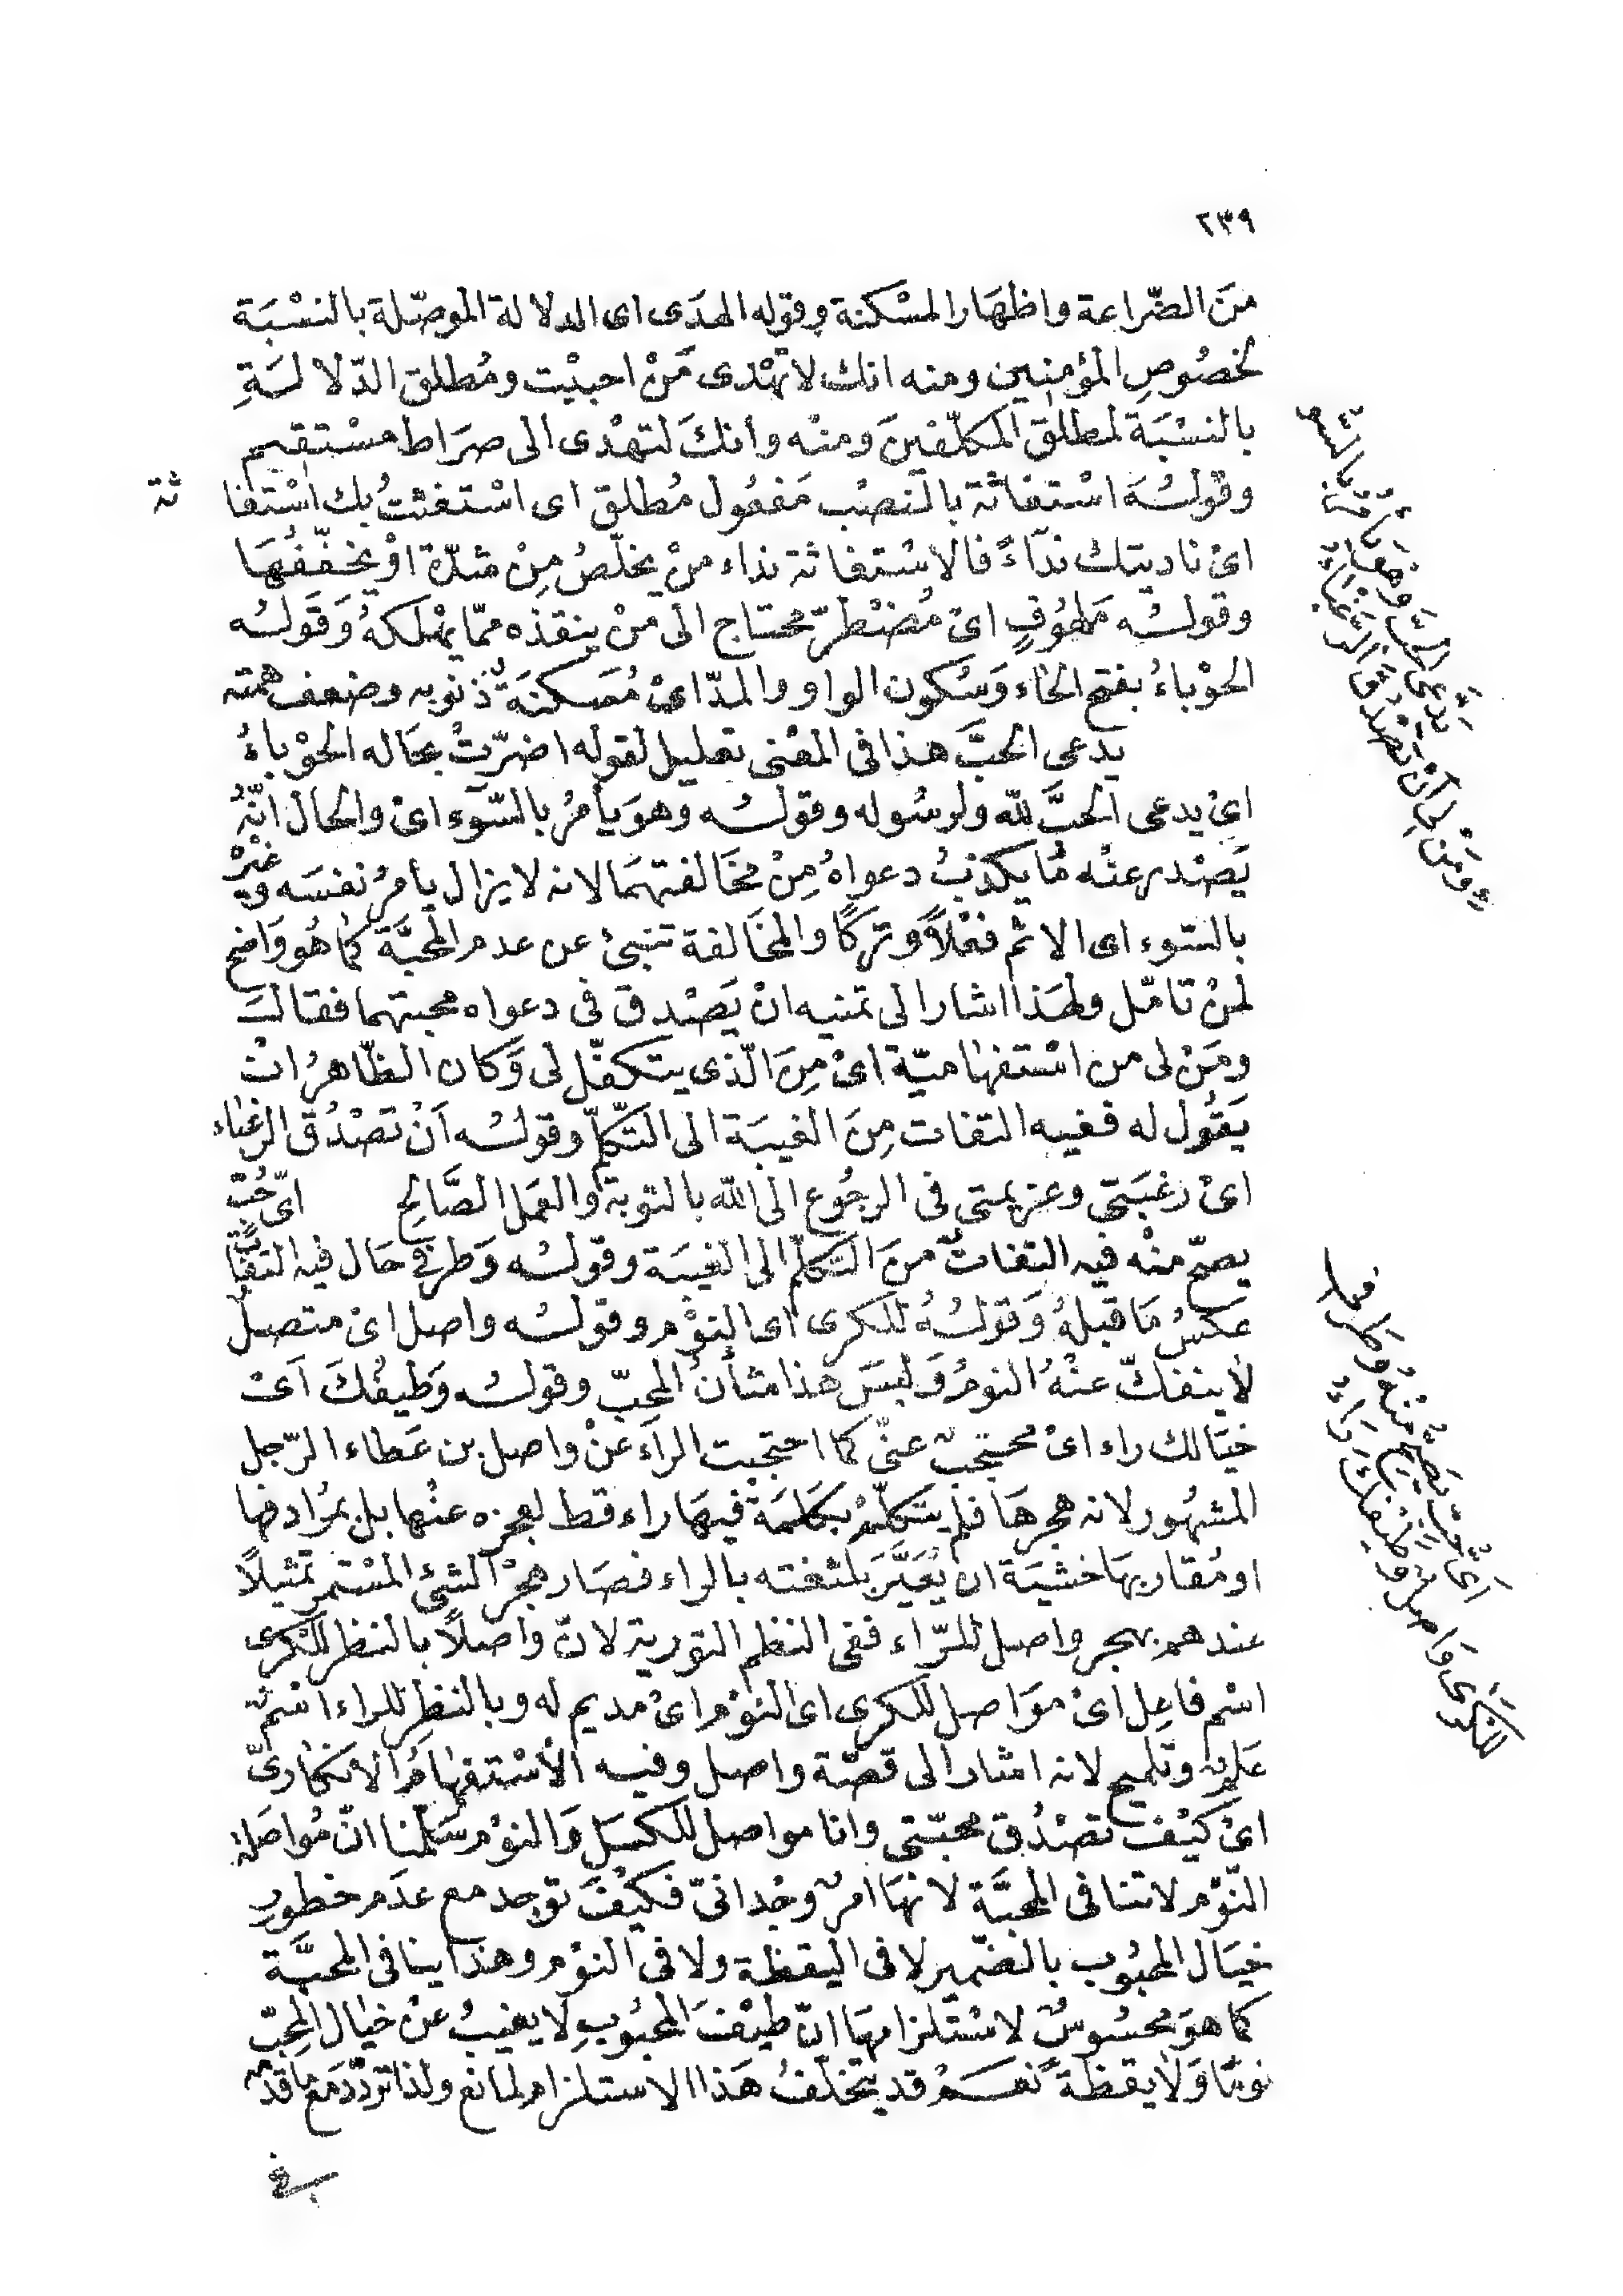 ٢٣٩
منَ الضّراعة واظهَار المسْكنة وقوله الهدَى اى الدلالة الموصّلة بالنسْبَة
لخصُوصِ المؤمنِين ومنه انك لا تهْدى مَنْ احببْت ومُطلق الدّلالَةِ
بالنسْبَة لمطلق المكلّفينَ ومنْه وانكَ لتهْدى الى صرَاط مسْتقيم
وقولُهُ اسْتغاثة بالنصْب مَفعُول مُطلق اى اسْتغثتُ بك اسْتغا
ثة
اىْ ناديتك ندَآءً فالاسْتغاثة نداء منْ يخلّصُ مِنْ شدّة اوْ يخفّفُهَا
وقولُه مَلهُوفٍ اىْ مُضْطرّ محتاج الى مَنْ ينقذه ممّا يهْلكهُ وَقَولُه
الحوْباءُ بفتح الحاء وَسُكون الواو والمدّ اىْ مُسكنَةُ ذنوبه وضعف همته
يدّعى الحبَّ هذا فى المعْنى تعليل لقوله اضرّتْ بحَاله الحوْباءُ
اىْ يدعى الحبَّ للّه ولرسُوله وقولُه وهوَ يأمرُ بالسّوَء اىْ والحال انّهُ
يَصْدر عنْه مَا يكذبُ دعواهُ مِنْ مخَالفتهمَا لانه لا يزال يأمرُ نفسَه وغيْرَ
بالسّوء اى الاثم فعْلاً وَتركًا والمخَالفة تنبىْ عن عدم المحبَّة كمَا هُو وَاضح
لمنْ تامّل ولهَذا اشار الى تمنيه انْ يَصْدق فى دعواه محبتهما فقالَ
ومَنْ لى من اسْتفهاميّة اىْ مِنَ الّذى يتكفّل لى وَكان الظّاهرُ انْ
يَقُول له ففيه التفات مِنَ الغيبَة الى التكلّم وقولُه اَنْ تَصْدُق الرغباء
اىْ رغبَتى وعزيمتى فى الرجُوع الى اللّه بالتوبة والعَمل الصَّالِح اىّ حُبّ
يصحّ منْه فيه التفاتٌ منَ التكلّم الى الغيبَة وقولُه وَطرفى حَال فيه التفاتٌ
عكسُ مَا قبلهُ وَقولُهُ للكرى اى النوْم وقولُه واصل اىْ متصل
لا ينفكّ عنْهُ النومُ وَليسَ هَذا شأنُ المحِبّ وقولُه وَطيفُكَ اَىْ
خيَالك راء اىْ محتجبٌ عنّى كما احتجبت الراء عَنْ واصل بن عَطاء الرّجل
المشهُور لانه هجرهَا فلم يتكلّمْ بكلمَة فيهَا راء قط لعجزه عنْها بل بمُرادفها
او مُقاربهَا خشيَة ان يُعَيَّرَ بلثغته بالراء فصَار هجْرُ الشئ المسْتمرّ تمثيلاً
عندهم بهجر واصل للرّاء ففى النظم التورية لانّ واصلاً بالنظر للكرى
اسْم فاعِل اىْ موَاصل للكرى اى النوْم اىْ مديم له وبالنظر للراء اسْم
عَلم وتلميح لانه اشار الى قصّة واصل وفيه الاسْتفهامُ الانكارىّ
اىْ كيْفَ تَصْدُق محبّتى وانا مواصل للكسَل وَالنوْم سَلّمنا انّ مُواصَلة
النّوْم لا تنافى المحبَّة لانهَا امرٌ وجْدانىّ فكيْفَ توجد مع عدَم خطور
خيَال المحبُوب بالضّمير لا فى اليقظة ولا فى النوْم وهذا ينافى المحبَّة
كما هوَ محسُوسٌ لاسْتلزامهَا انّ طيْفَ المحبُوبِ لا يغيبُ عنْ خيال المحِبّ
نومًا وَلا يقظَةً نعَمْ قد يتخلّفُ هَذا الاستلزام لمانع ولذا تردّدَ مَع ما قدمَه
يدّعى الحبَّ وهْوَ يَأمُرُ بالسُّو
ءِ وَمَنْ لى اَنْ تَصْدُقَ الرَّغْبَاءُ
اىُّ حُبٍّ يَصِحُّ مِنْهُ وَطَرْفى
لِلْكَرَى وَاصِلٌ وَطَيْفُكَ رَاءُ